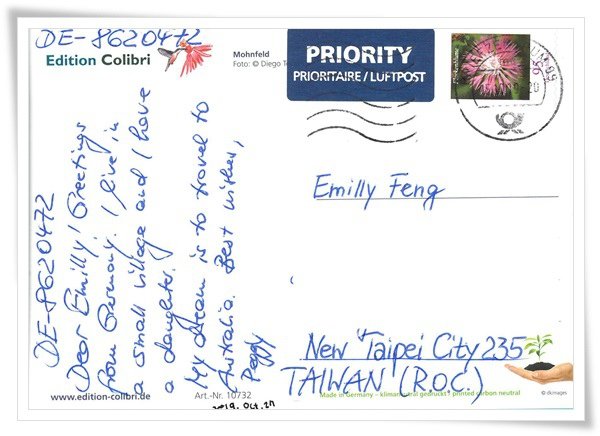 DE-8620472
Edition Colibri
Mohnfeld
Foto: © Diego
PRIORITY
PRIORITAIRE / LUFTPOST
95
DE-8620472
Dear Emilly! Greetings
from Germany. I live in
a small village and I have
a daughter.
My dream is to travel to
Australia. Best wishes,
Peggy
Emilly Feng
New Taipei City 235
TAIWAN (R.O.C.)
www.edition-colibri.de
Art.-Nr. 10732
2019. Oct. 27
Made in Germany – klimaneutral gedruckt / printed carbon neutral
© dkimages